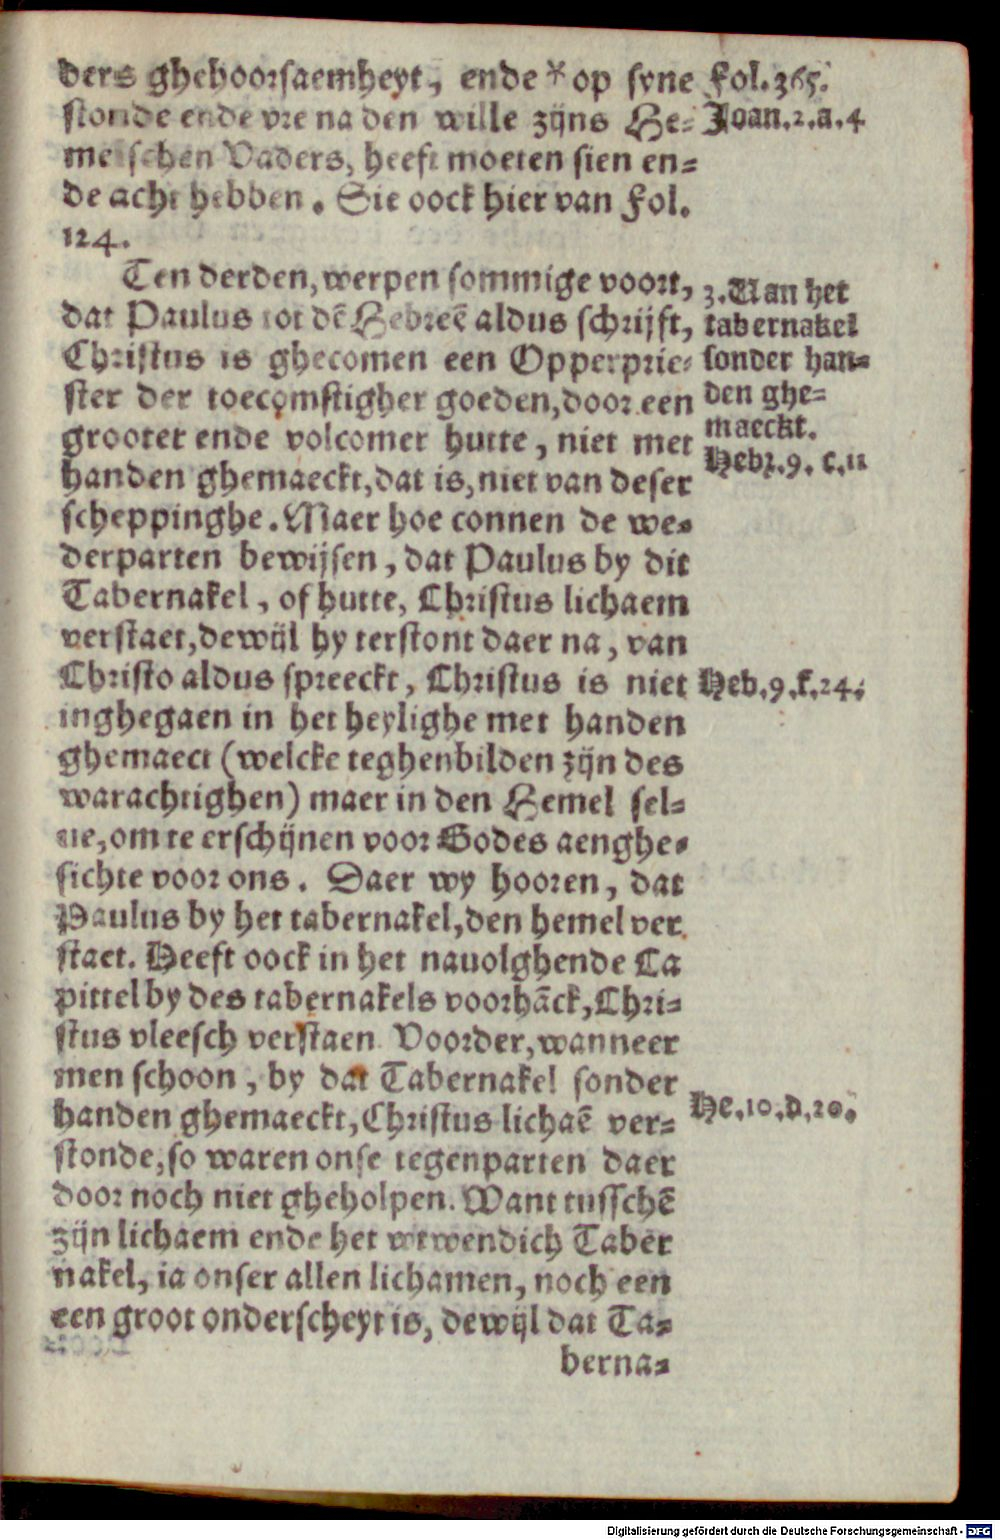 ders ghehoorsaemheyt, ende * op syne
stonde ende vre na den wille zijns He-
melschen Vaders, heeft moeten sien en-
de acht hebben. Sie oock hier van Fol.
124.
Fol. 365.
Joan. 2. a. 4
Ten derden, werpen sommige voort,
dat Paulus tot dē Hebreē aldus schrijft,
Christus is ghecomen een Opperprie-
ster der toecomstigher goeden, door een
grooter ende volcomer hutte, niet met
handen ghemaeckt, dat is, niet van deser
scheppinghe. Maer hoe connen de we-
derparten bewijsen, dat Paulus by dit
Tabernakel, of hutte, Christus lichaem
verstaet, dewijl hy terstont daer na, van
Christo aldus spreeckt, Christus is niet
inghegaen in het heylighe met handen
ghemaect (welcke teghenbilden zijn des
warachtighen) maer in den Hemel sel-
ue, om te erschijnen voor Godes aenghe-
sichte voor ons. Daer wy hooren, dat
Paulus by het tabernakel, den hemel ver
staet. Heeft oock in het nauolghende Ca
pittel by des tabernakels voorhāck, Chri-
stus vleesch verstaen. Voorder, wanneer
men schoon, by dat Tabernakel sonder
handen ghemaeckt, Christus lichaē ver-
stonde, so waren onse tegenparten daer
door noch niet gheholpen. Want tusschē
zijn lichaem ende het wtwendich Taber
nakel, ia onser allen lichamen, noch een
een groot onderscheyt is, dewijl dat Ta-
berna-
3. Van het
tabernakel
sonder han-
den ghe-
maeckt.
Hebr. 9. c. 11
Heb. 9. f. 24.
He. 10. d. 20.
Digitalisierung gefördert durch die Deutsche Forschungsgemeinschaft - DFG